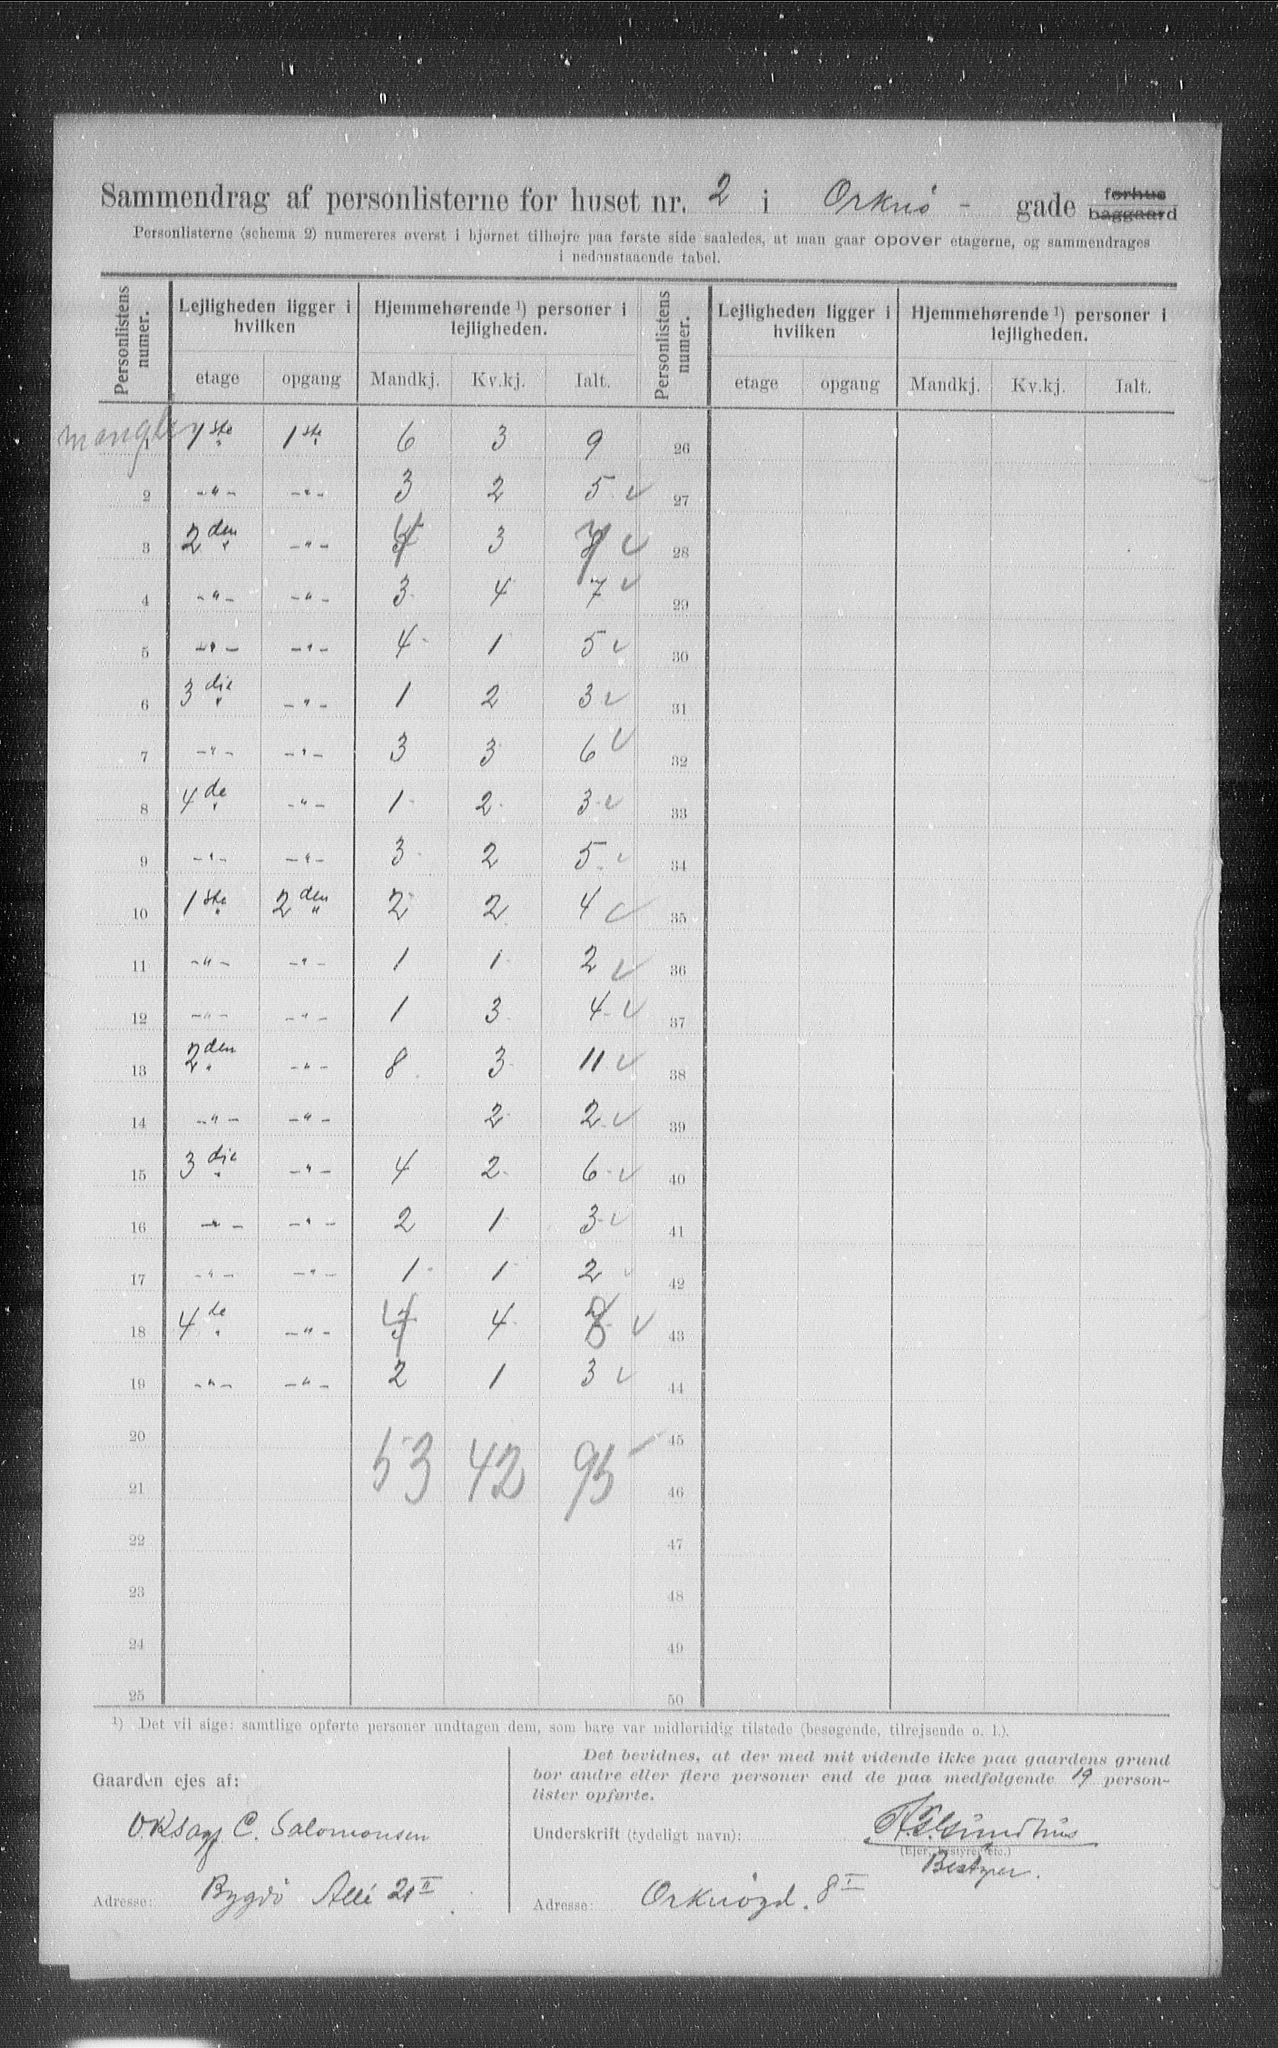 Sammendrag af personlisterne for huset nr. 2 i Orknö - gade forhus baggaard
Personlisterne (schema 2) numereres øverst i hjørnet tilhøjre paa første side saaledes, at man gaar opover etagerne, og sammendrages
i nedenstaaende tabel.
Personlistens numer. Lejligheden ligger i hvilken Hjemmehørende ¹) personer i lejligheden. Personlistens numer. Lejligheden ligger i hvilken Hjemmehørende ¹) personer i lejligheden.
etage opgang Mandkj. Kv.kj. Ialt. etage opgang Mandkj. Kv.kj. Ialt.
mangler 1 1ste 1ste 6 3 9 26
2 -"- -"- 3 2 5 ✓ 27
3 2den -"- 4 3 7 ✓ 28
4 -"- -"- 3 4 7 ✓ 29
5 -"- -"- 4 1 5 ✓ 30
6 3die -"- 1 2 3 ✓ 31
7 -"- -"- 3 3 6 ✓ 32
8 4de -"- 1 2 3 ✓ 33
9 -"- -"- 3 2 5 ✓ 34
10 1ste 2den 2 2 4 ✓ 35
11 -"- -"- 1 1 2 ✓ 36
12 -"- -"- 1 3 4 ✓ 37
13 2den -"- 8 3 11 ✓ 38
14 -"- -"- 2 2 ✓ 39
15 3die -"- 4 2 6 ✓ 40
16 -"- -"- 2 1 3 ✓ 41
17 -"- -"- 1 1 2 ✓ 42
18 4de -"- 4 4 8 ✓ 43
19 -"- -"- 2 1 3 ✓ 44
20 45
53 42 95
21 46
22 47
23 48
24 49
25 50
¹) Det vil sige: samtlige opførte personer undtagen dem, som bare var midlertidig tilstede (besøgende, tilrejsende o. l.).
Gaarden ejes af:
C. Salomonsen
Adresse: Bygdö Allé 21 II
Det bevidnes, at der med mit vidende ikke paa gaardens grund
bor andre eller flere personer end de paa medfølgende 19 person-
lister opførte.
Underskrift (tydeligt navn):
(Ejer, bestyrer etc.)
Bestyrer.
Adresse: Orknögd. 8 I